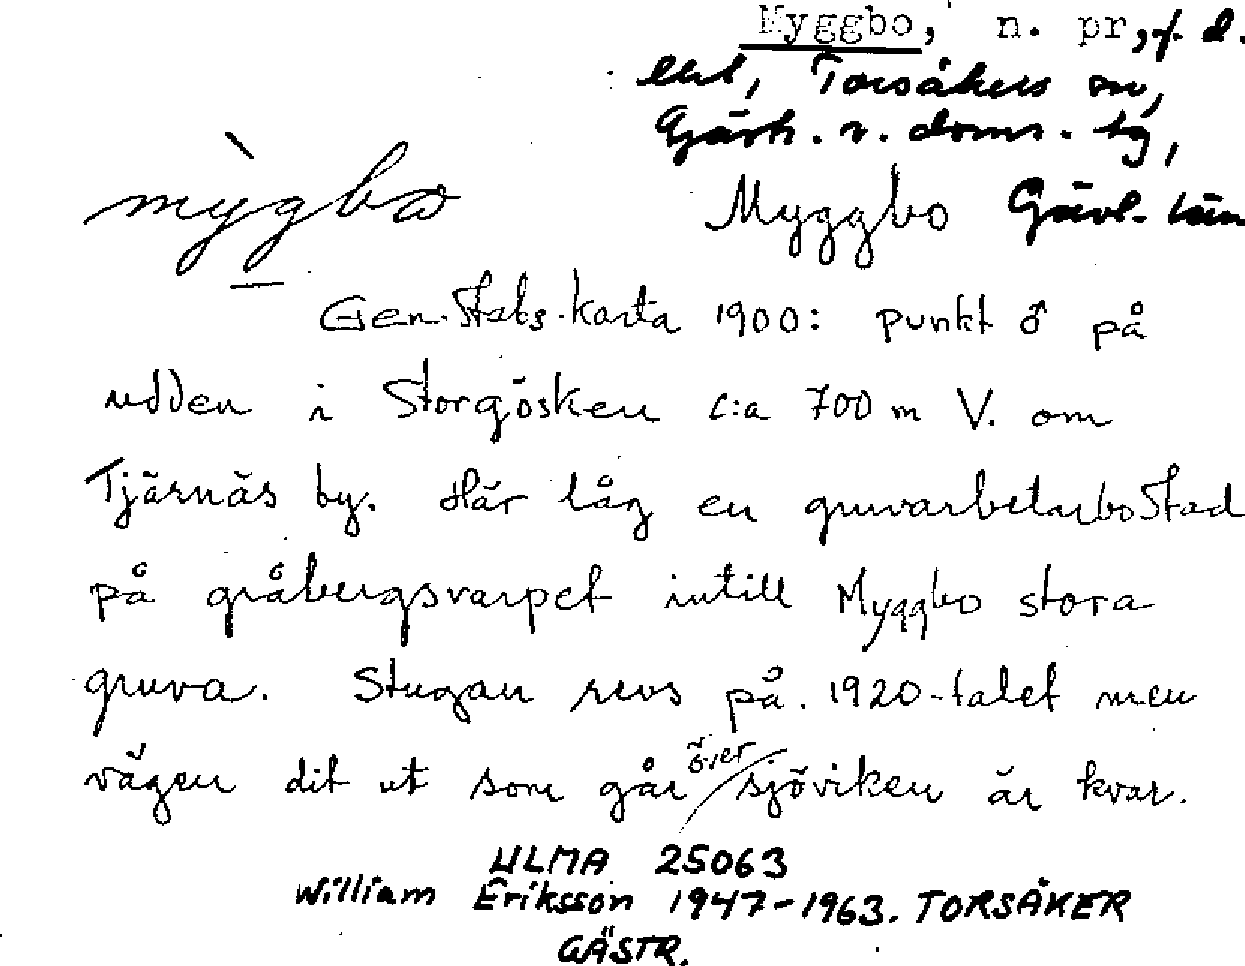 Myggbo, n. pr, f. d.
lht, Torsåkers sn,
Gästr. v. doms. tg,
mỳgbo Myggbo Gävl. län
Gen. Stabs. karta 1900: punkt ♂ på
udden i Storgösken c:a 700 m V. om
Tjärnäs by. Här låg en gruvarbetarbostad
på gråbergsvarpet intill Myggbo stora
gruva. Stugan revs på 1920-talet men
vägen dit ut som går över sjöviken är kvar.
ULMA 25063
William Eriksson 1947-1963. TORSÅKER
GÄSTR.